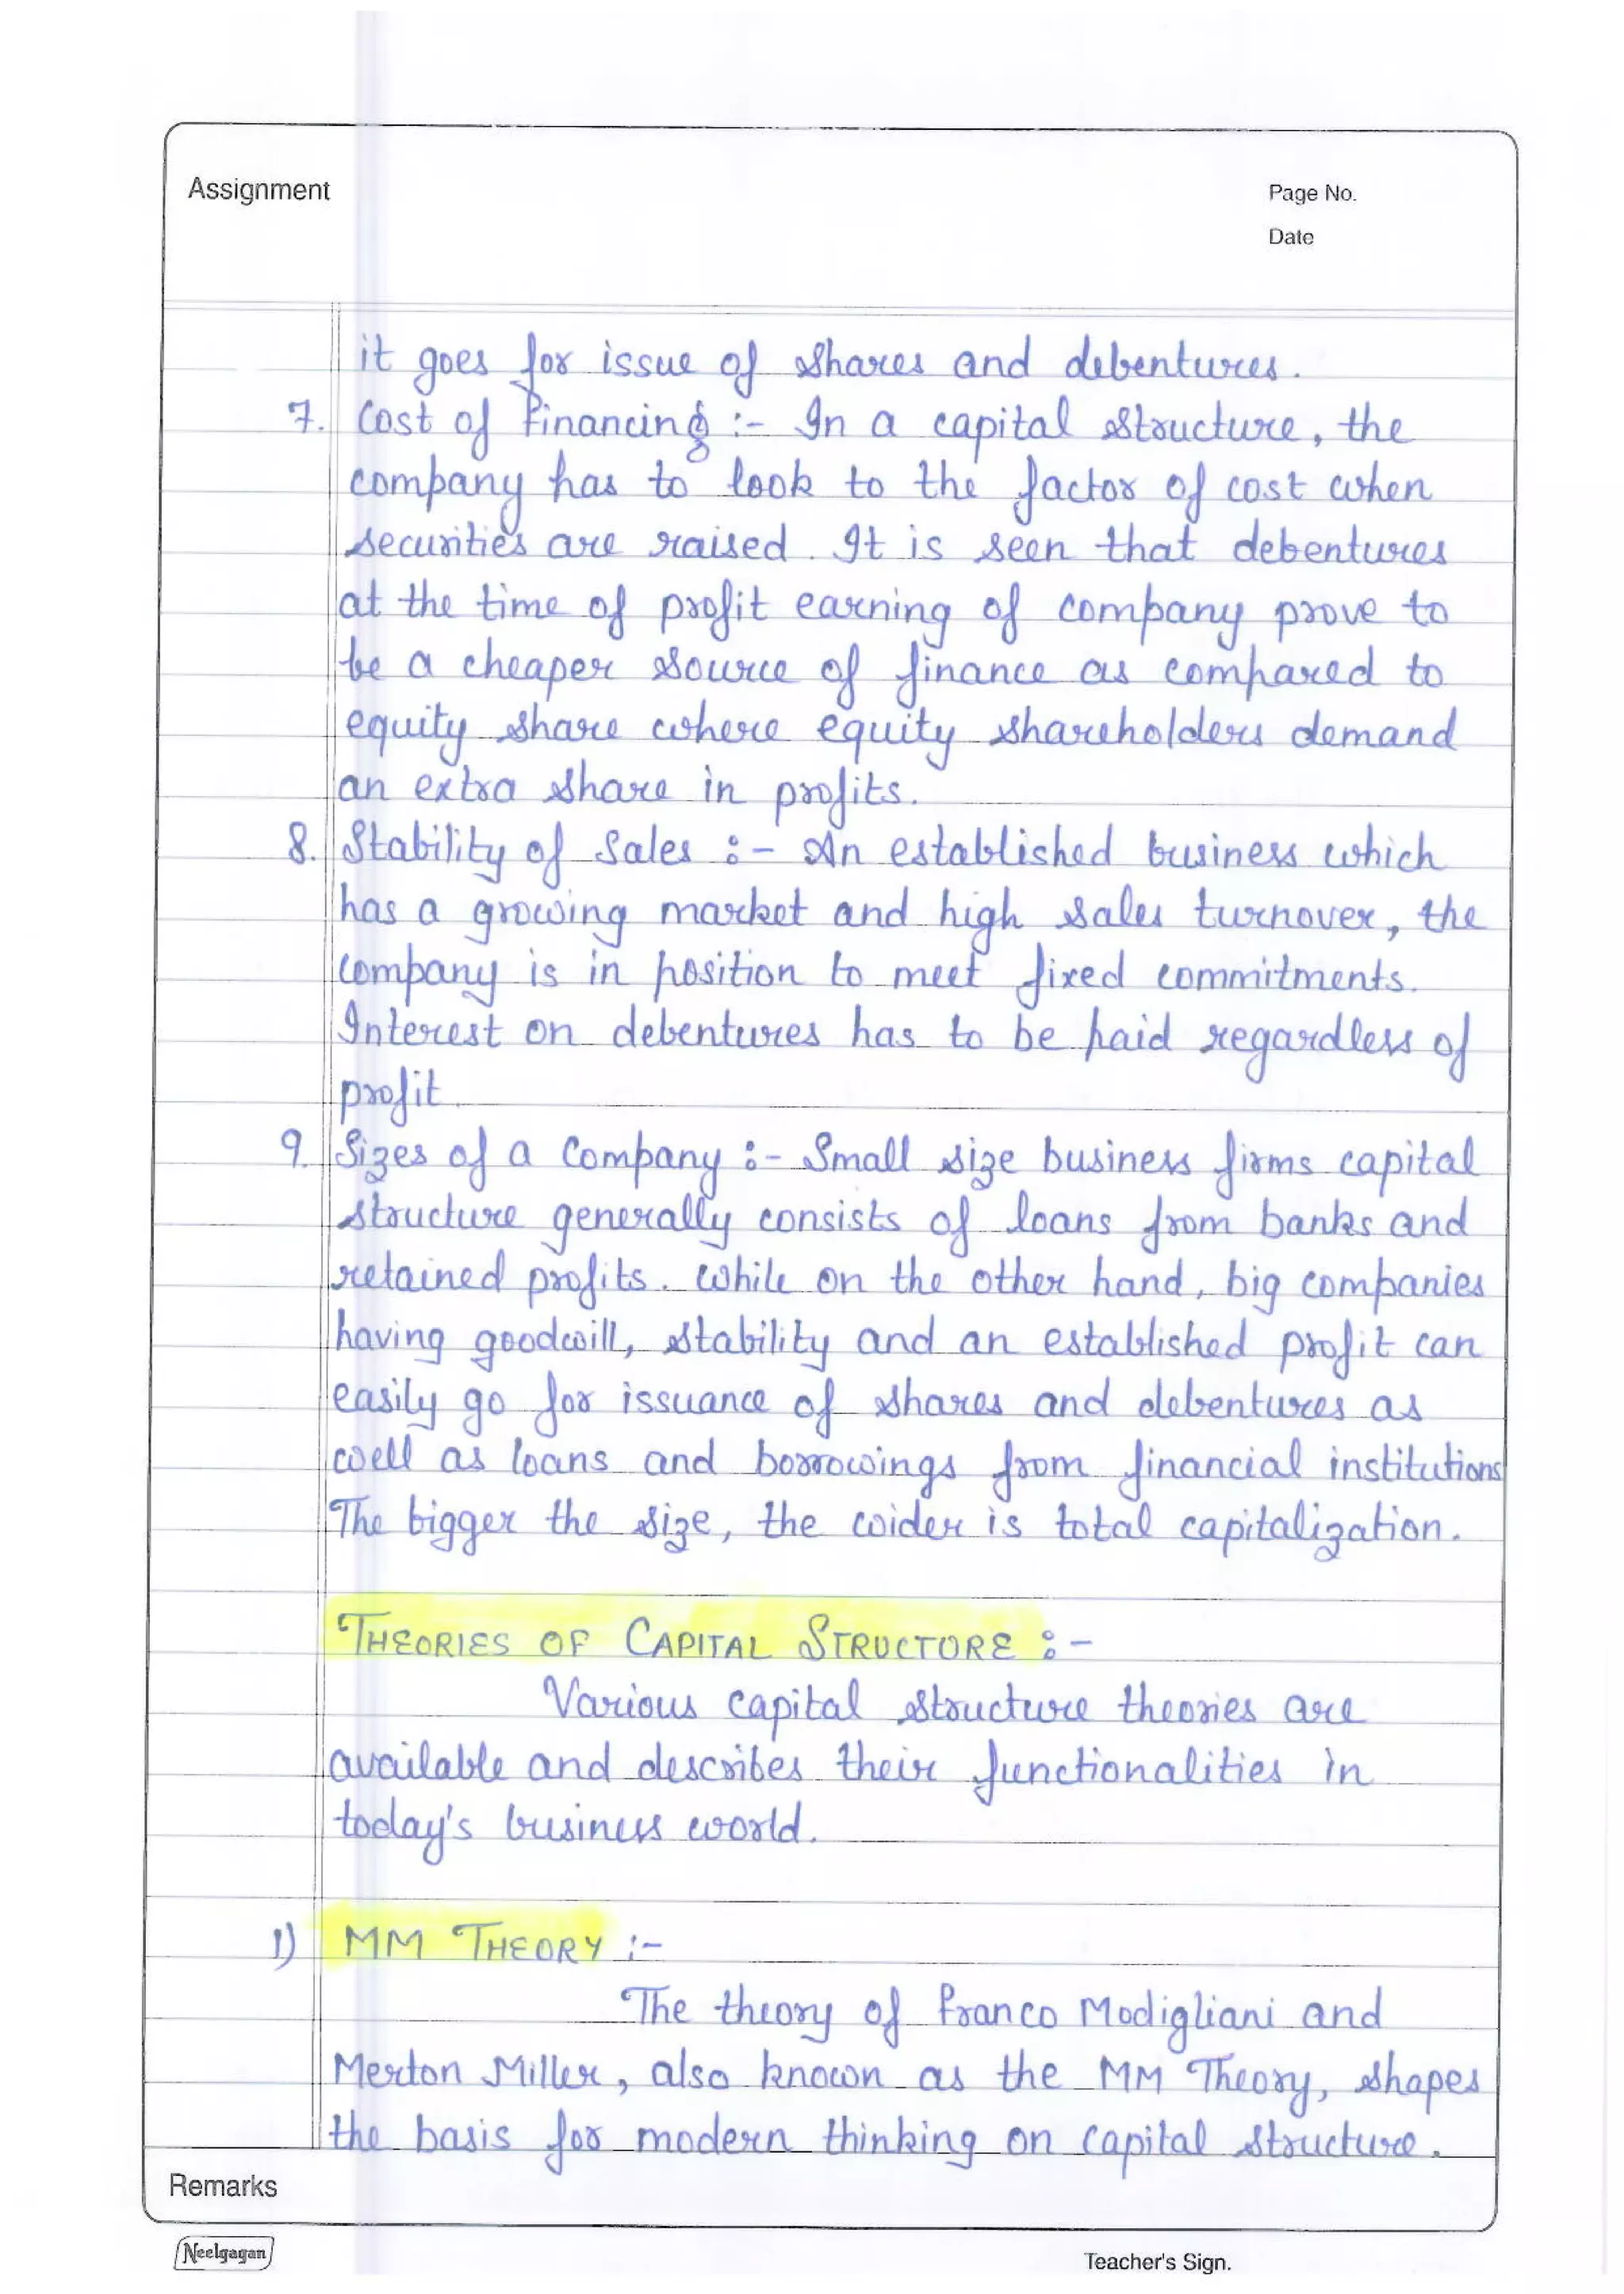 Assignment
Page No.
Date
it goes for issue of shares and debentures.
7. Cost of Financing :- In a capital structure, the
company has to look to the factor of cost when
securities are raised. It is seen that debentures
at the time of profit earning of company prove to
be a cheaper source of finance as compared to
equity share where equity shareholders demand
an extra share in profits.
8. Stability of Sales :- An established business which
has a growing market and high sales turnover, the
company is in position to meet fixed commitments.
Interest on debentures has to be paid regardless of
profit.
9. Sizes of a Company :- Small size business firms capital
structure generally consists of loans from banks and
retained profits. While on the other hand, big companies
having goodwill, stability and an established profit can
easily go for issuance of shares and debentures as
well as loans and borrowings from financial institutions
The bigger the size, the wider is total capitalization.
THEORIES OF CAPITAL STRUCTURE :-
Various capital structure theories are
available and describes their functionalities in
today's business world.
1) MM THEORY :-
The theory of Franco Modigliani and
Merton Miller, also known as the MM Theory, shapes
the basis for modern thinking on capital structure.
Remarks
Neelgagan
Teacher's Sign.